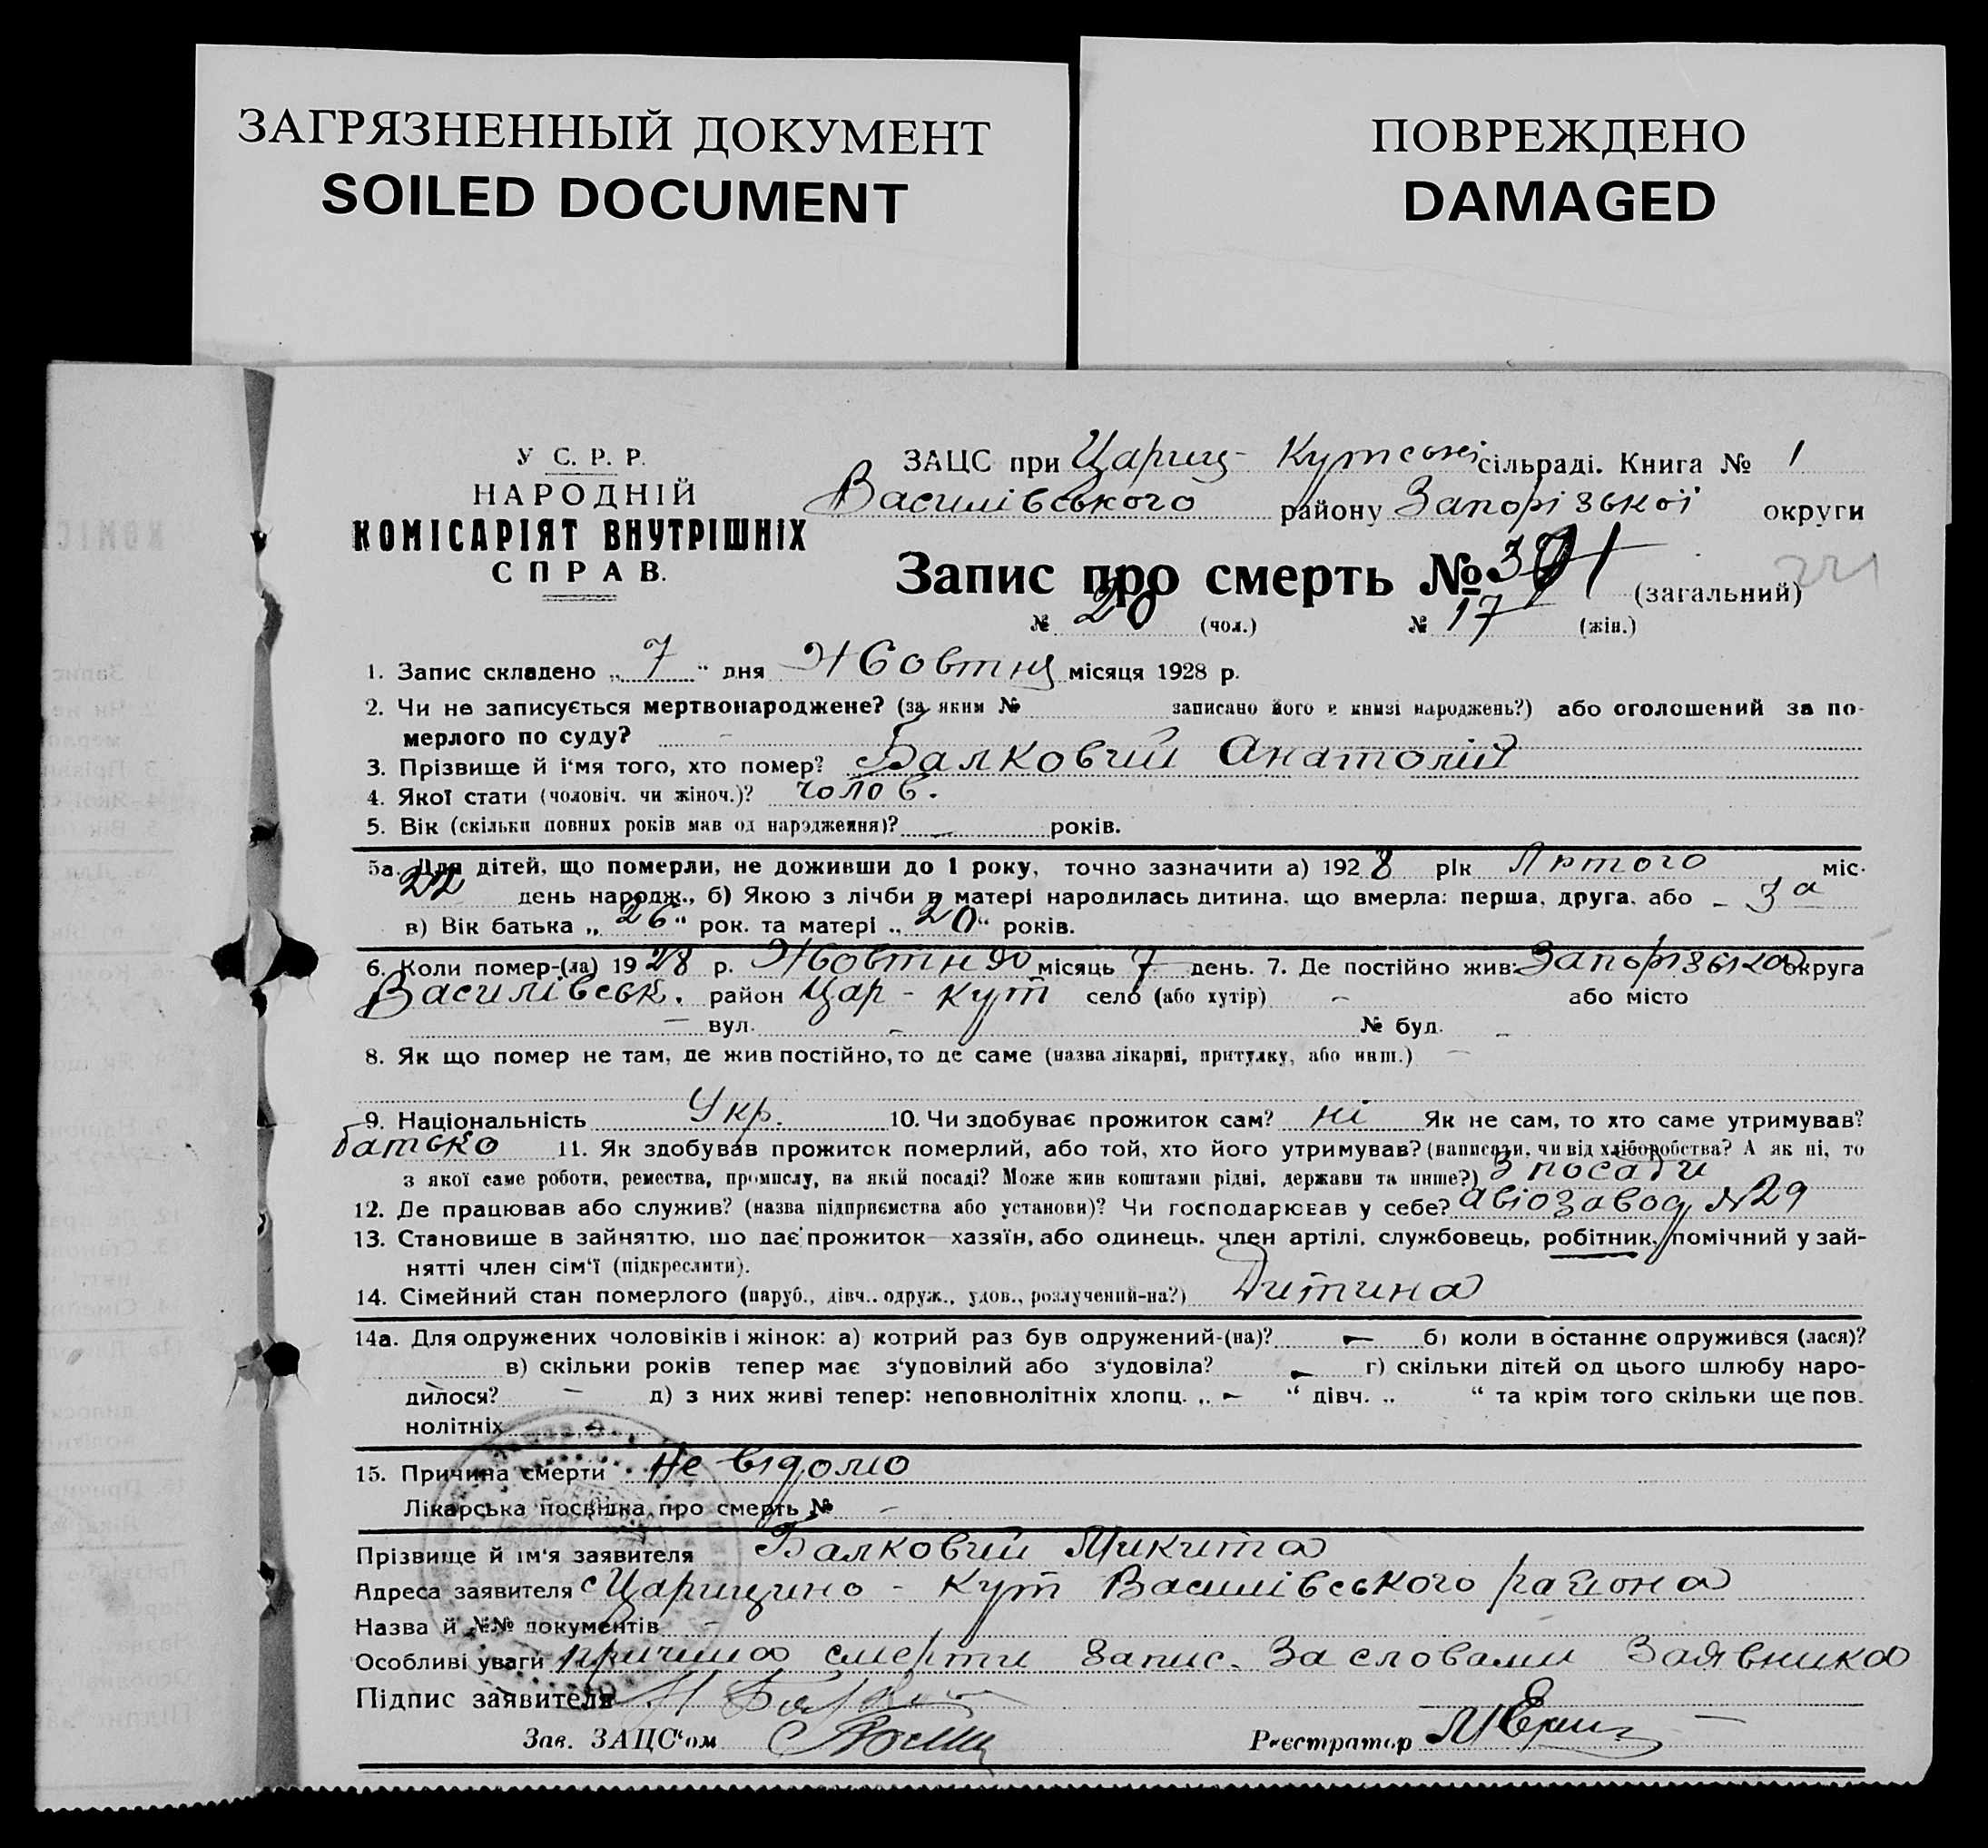 ЗАГРЯЗНЕННЫЙ ДОКУМЕНТ
SOILED DOCUMENT
ПОВРЕЖДЕНО
DAMAGED
У С. Р. Р.
НАРОДНІЙ
КОМІСАРІЯТ ВНУТРІШНІХ
СПРАВ.
ЗАЦС при Цариц-Кутській сільраді. Книга № 1
Василівського району Запорізької округи
Запис про смерть № (загальний)
221
№ 20 (чол.) № 17 (жін.)
1. Запис складено „ 7 “ дня Жовтня місяця 1928 р.
2. Чи не записується мертвонароджене? (за яким № записано його в книзі народжень?) або оголошений за по-
мерлого по суду? –
3. Прізвище й і‘мя того, хто помер? Балковий Анатолій
4. Якої стати (чоловіч. чи жіноч.)? чолов.
5. Вік (скільки повних років мав од народження)? – років.
5а. Для дітей, що померли, не доживши до 1 року, точно зазначити а) 1928 рік Лютого міс.
22 день народж., б) Якою з лічби в матері народилась дитина, що вмерла: перша, друга, або – 3а
в) Вік батька „ 26 “ рок. та матері „ 20 “ років.
6. Коли помер-(ла) 1928 р. Жовтня місяць 7 день. 7. Де постійно жив: Запорізька округа
Василівськ. район Цар-Кут село (або хутір) – або місто
– вул. – № буд. –
8. Як що помер не там, де жив постійно, то де саме (назва лікарні, притулку, або инш.) –
9. Національність Укр. 10. Чи здобуває прожиток сам? ні Як не сам, то хто саме утримував?
батько 11. Як здобував прожиток померлий, або той, хто його утримував? (написати, чи від хліборобства? А як ні, то
з якої саме роботи, ремества, промислу, на якій посаді? Може жив коштами рідні, держави та инше?) З посади
12. Де працював або служив? (назва підприємства або установи)? Чи господарював у себе? авіозавод №29
13. Становище в зайняттю, що дає прожиток—хазяїн, або одинець, член артілі, службовець, робітник, помічний у зай-
нятті член сім‘ї (підкреслити).
14. Сімейний стан померлого (паруб., дівч.. одруж., удов., розлучений-на?) Дитина
14а. Для одружених чоловіків і жінок: а) котрий раз був одружений-(на)? – б) коли в останнє одружився (лася)?
в) скільки років тепер має з‘удовілий або з‘удовіла? – г) скільки дітей од цього шлюбу наро-
дилося? – д) з них живі тепер: неповнолітніх хлопц. „ – “ дівч. „ “ та крім того скільки ще пов.
нолітніх –
15. Причина смерти Не відомо
Лікарська посвідка про смерть № –
Прізвище й ім‘я заявителя Балковий Микита
Адреса заявителя с Царицино-Кут Василівського района
Назва й №№ документів –
Особливі уваги причина смерти запис. За словами Заявника
Підпис заявителя
Зав. ЗАЦС‘ом
Реєстратор